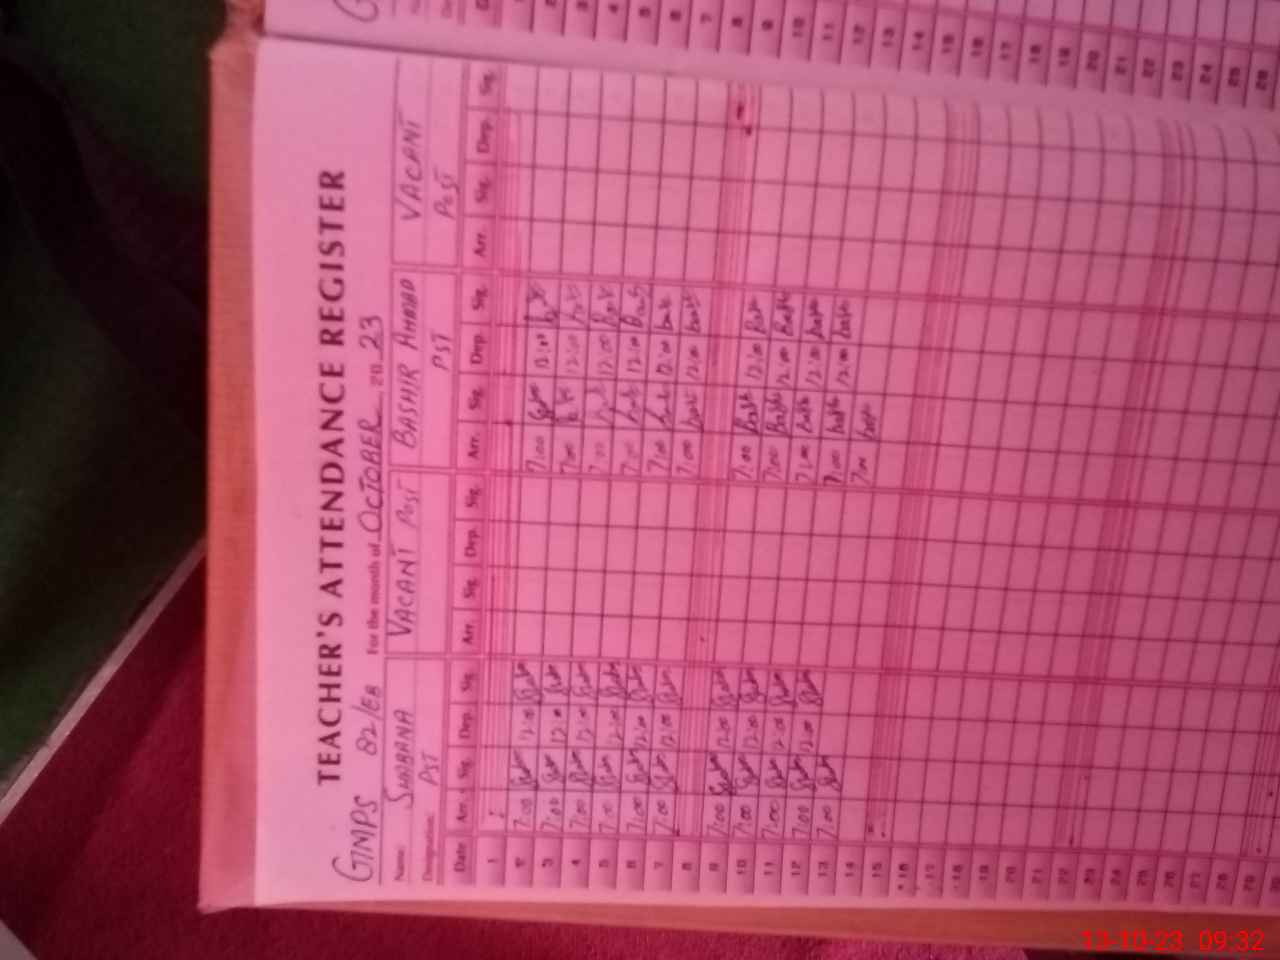 TEACHER'S ATTENDANCE REGISTER
GIMPS 82/EB For the month of OCTOBER 20 23
Name: SHABANA VACANT POST BASHIR AHMAD VACANT
Designation: PST PST POST
Date Arr. Sig. Dep. Sig. Arr. Sig. Dep. Sig. Arr. Sig. Dep. Sig. Arr. Sig. Dep. Sig.
1
2 7:00 12:00 7:00 12:00
3 7:00 12:00 7:00 12:00
4 7:00 12:00 7:00 12:00
5 7:00 12:00 7:00 12:00
6 7:00 12:00 7:00 12:00
7 7:00 12:00 7:00 12:00
8
9 7:00 12:00 7:00 12:00
10 7:00 12:00 7:00 12:00
11 7:00 12:00 7:00 12:00
12 7:00 12:00 7:00 12:00
13 7:00 7:00
14
15
16
17
18
19
20
21
22
23
24
25
26
27
28
29
30
1
2
3
4
5
6
7
8
9
10
11
12
13
14
15
16
17
18
19
20
21
22
23
24
25
26
13-10-23 09:32